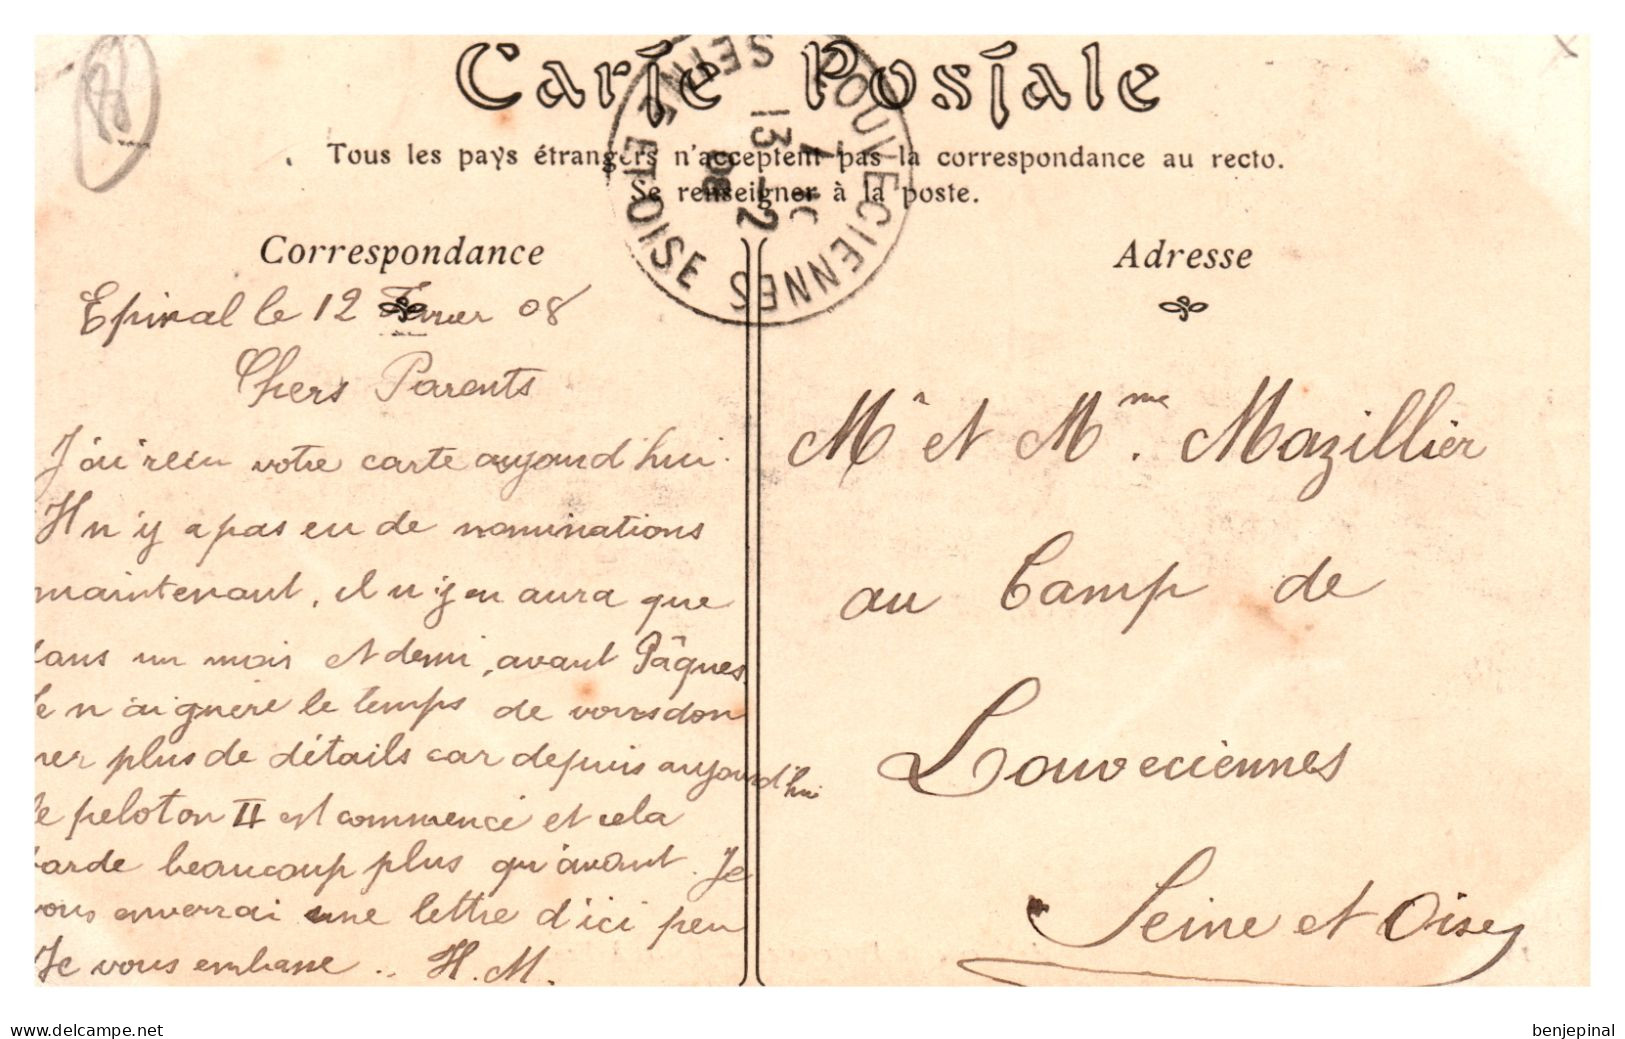 Carte Postale
Tous les pays étrangers n'acceptent pas la correspondance au recto.
Se renseigner à la poste.
LOUVECIENNES
SEINE ET OISE
13 - 2
08
Correspondance
Epinal le 12 Fevrier 08
Chers Parents
J'ai recu votre carte aujourd'hui.
Il n'y a pas eu de nominations
maintenant, il n'y en aura que
dans un mois et demi, avant Pâques.
Je n'ai guère le temps de vous don
ner plus de détails car depuis aujourd'hui
le peloton II est commencé et cela
barde beaucoup plus qu'avant. Je
vous enverrai une lettre d'ici peu
Je vous embrasse .. H. M.
Adresse
Mr et Mme. Mazillier
au Camp de
Louveciennes
Seine et Oise
www.delcampe.net
benjepinal